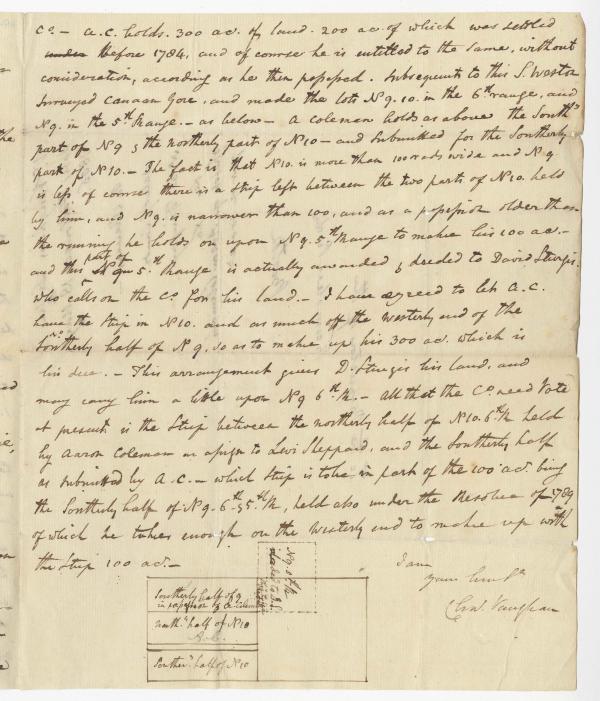 Co. — A.C. holds. 300 ac. of land. 200 ac. of which was settled
under before 1784, and of course he is entitled to the same, without
consideration, according as he then possessed. Subsequent to this S. Weston
Surveyed Canaan Gore, and made the lots No 9. 10. in the 6th range, and
No 9. in the 5th Range. — as below — A Coleman holds as above the South
part of No 9 & the northerly part of No 10 — and Submitted for the Southerly
part of No 10. — The fact is that No 10. is more than 100 rods wide and No 9
is less of course there is a Strip left between the two parts of No 10. held
by him, and No 9. is narrower than 100, and as a possession older than
the running he holds on upon No 9. 5th Range to make his 100 ac. —
and this part of No 9 in 5th Range is actually awarded & deeded to David Sturgis.
who calls on the Co. for his land. — I have agreed to let A.C.
have the Strip in No 10. and as much off the Westerly end of the
Southerly half of No 9. so as to make up his 300 ac. which is
his due. — This arrangement gives D. Sturgis his land, and
may carry him a little upon No 9 6th R. — all that the Co. need Vote
at present is the Strip between the northerly half of No 10. 6th R held
by Aaron Coleman as assign to Levi Sheppard, and the Southerly half
as submitted by A.C. — which Strip is to be in part of the 100 ac. being
the Southerly half of No 9. 6th & 5th R, held also under the Resolve of 1789
of which he takes enough on the Westerly end to make up with
the Strip 100 ac. —
I am
Your
Chas. Vaughan
No 9. 5th R
Southerly half of 9
in possession of A. Coleman
north half of No 10
A.C.
Souther half of No 10